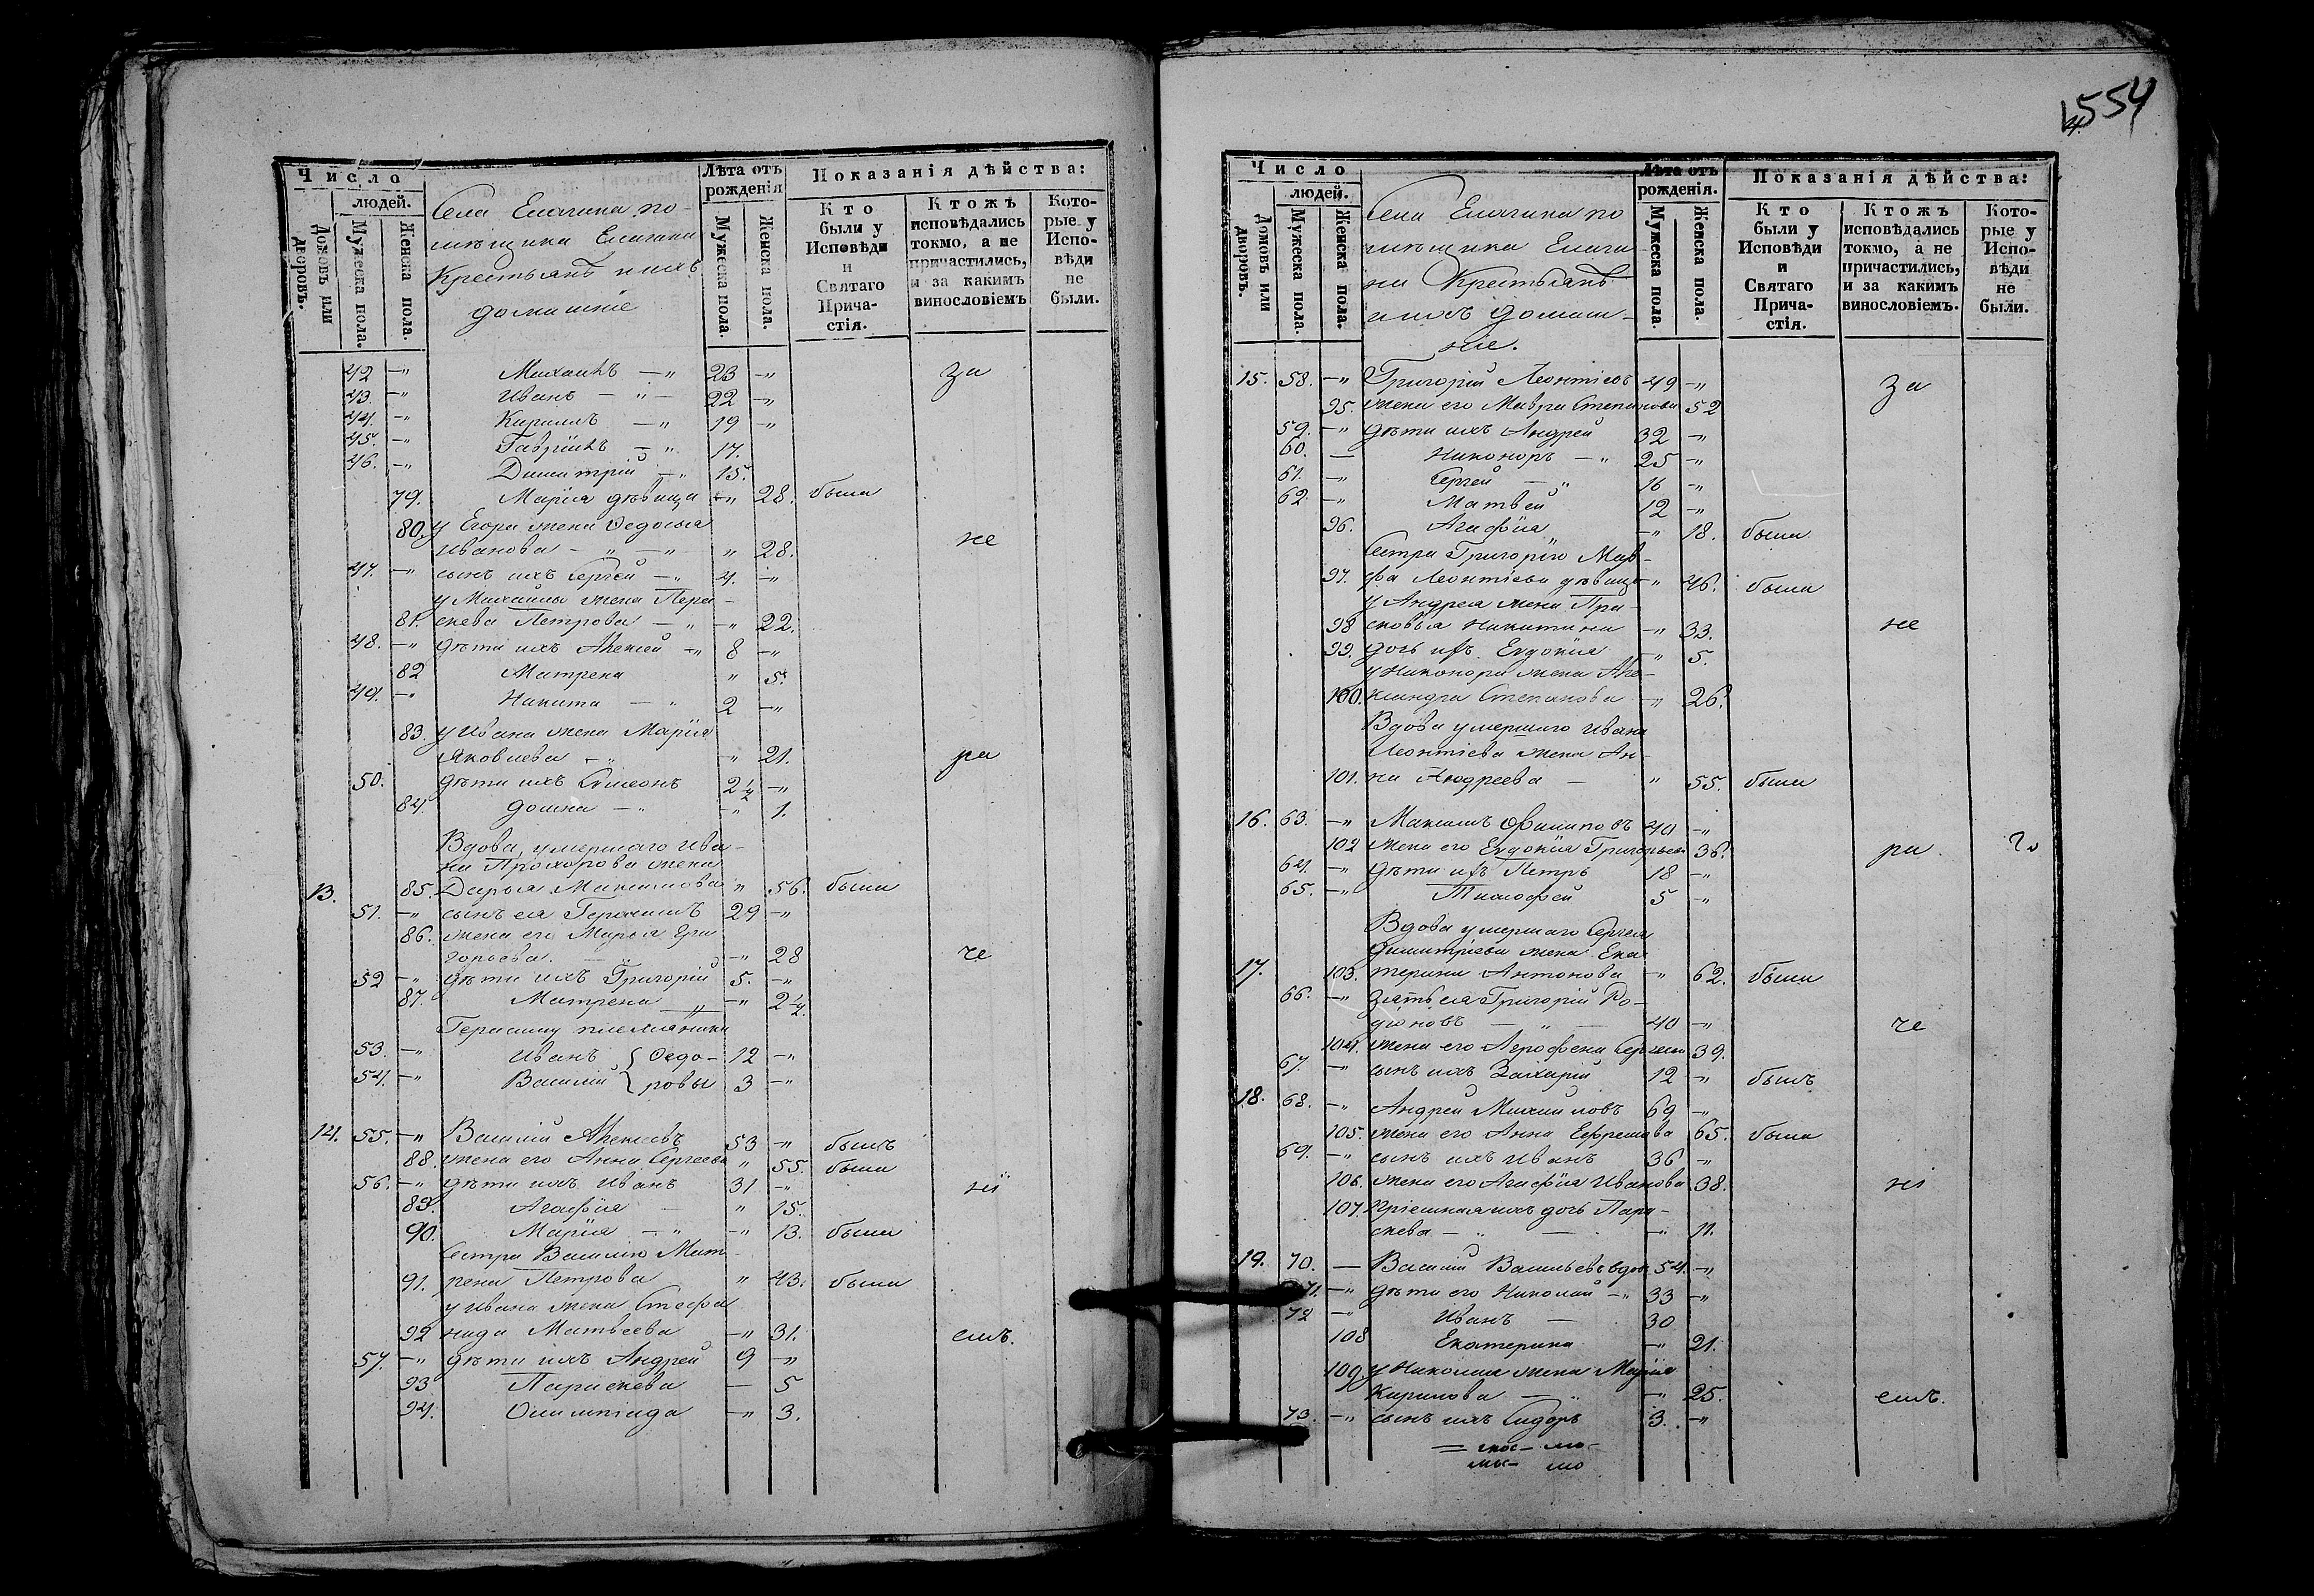 554
Число
людей.
Домовъ или дворовъ.
Мужеска пола.
Женска пола.
Села Елагина по-
мѣщика Елагина
Крестьянъ и ихъ
домашніе
Лѣта отъ рожденія
Мужеска пола.
Женска пола.
Показанія дѣйства:
Кто были у Исповѣди и Святаго Причастія.
Ктожъ исповѣдались токмо, а не причастились, и за какимъ винословіемъ
Которые у Исповѣди не были.
42 -" Михаилъ -" 23 -" за
43. -" Иванъ -" 22 -"
44. -" Кириллъ -" 19 -"
45. -" Гавріилъ -" 17.
46. -" Димитрій -" 15.
79. Марія дѣвица -" 28. была
80. у Егора жена Ѳедосья
Иванова -" -" " 28. не
47. -" сынъ ихъ Сергей -" 4. -"
у Михайлы жена Пера-
81. скева Петрова -" -" 22.
48. -" дѣти ихъ Алексей -" 8 -"
82 Матрена " 5.
49. -" Никита -" 2 -"
83. у Ивана жена Марія
Яковлева -" -" 21. ра
50. дѣти ихъ Симеонъ 2½ -"
84. Домна -" -" 1.
Вдова, умершаго Ива-
на Прохорова жена
13. 85. Дарья Максимова " 56. была
51. -" сынъ ея Герасимъ 29 -"
86. жена его Марья Гри
горьева. -" 28 че
52 -" дѣти ихъ Григорій 5. -"
87. Матрена -" 2½
Герасиму племянники
53. -" Иванъ { Ѳедо- 12 -"
54. -" Василій { ровы 3 -"
14. 55. -" Василій Алексеевъ 53 -" былъ
88. жена его Анна Сергеева " 55. была
56. -" дѣти ихъ Иванъ 31 -" ні
89. Агафія - " 15.
90. Марія -" -" 13. была
Сестра Василію Мат-
91. рена Петрова " 43. была
у Ивана жена Стефа
92 нида Матвеева -" 31. емъ.
57. -" дѣти ихъ Андрей 9 -"
93 Параскева - 5
94. Олимпіада -" 3.
Число
людей.
Домовъ или дворовъ.
Мужеска пола.
Женска пола.
Села Елагина по
мѣщика Елаги
на Крестьянъ
и ихъ домаш-
ніе.
Лѣта отъ рожденія.
Мужеска пола.
Женска пола.
Показанія дѣйства:
Кто были у Исповѣди и Святаго Причастія.
Ктожъ исповѣдались токмо, а не причастились, и за какимъ винословіемъ.
Которые у Исповѣди не были.
15. 58. -" Григорій Леонтіевъ 49 -" за
95. жена его Мавра Степанова 52
59. -" дѣти ихъ Андрей 32 -"
60. - Никоноръ -" 25 -"
61. -" Сергей -" 16 -"
62. -" Матвей 12 -"
96. Агафія -" 18. была
Сестра Григорію Мар-
97. фа Леонтіева дѣвица -" 46. была
у Андрея жена Пра-
98 сковья Никитина -" 33. не
99. дочь ихъ Евдокія -" 5.
у Никонора жена Але-
100. ксандра Степанова -" 26.
Вдова умершаго Ивана
Леонтіева жена Ан-
101. на Андреева - " 55. была
16. 63. -" Максимъ Филиповъ 40 -"
102 жена его Евдокія Григорьева 36. ра
64. -" дѣти ихъ Петръ 18 -"
65. -" Тимофей 5 -"
Вдова умершаго Сергея
Димитріева жена Ека
17. 103. терина Антонова -" 62. была
66. -" зять ея Григорій Ро-
діоновъ -" - 40 -" че
104. жена его Агрофена Сергеева 39.
67. -" сынъ ихъ Захарій 12 -" былъ
18. 68. -" Андрей Михайловъ 69 -"
105. жена его Анна Ефремова 65. была
69. -" сынъ ихъ Иванъ 36 -"
106. жена его Агафія Иванова 38. ні
107. пріемная ихъ дочь Пара-
скева -" - -" 11.
19. 70. - Василій Васильевъ вдов 54. -"
71. -" дѣти его Николай -" 33 -"
72 -" Иванъ - 30
108 Екатерина -" 21.
109. у Николая жена Марія
Кирилова -" -" 25. емъ.
73. -" сынъ ихъ Сидоръ 3. -"